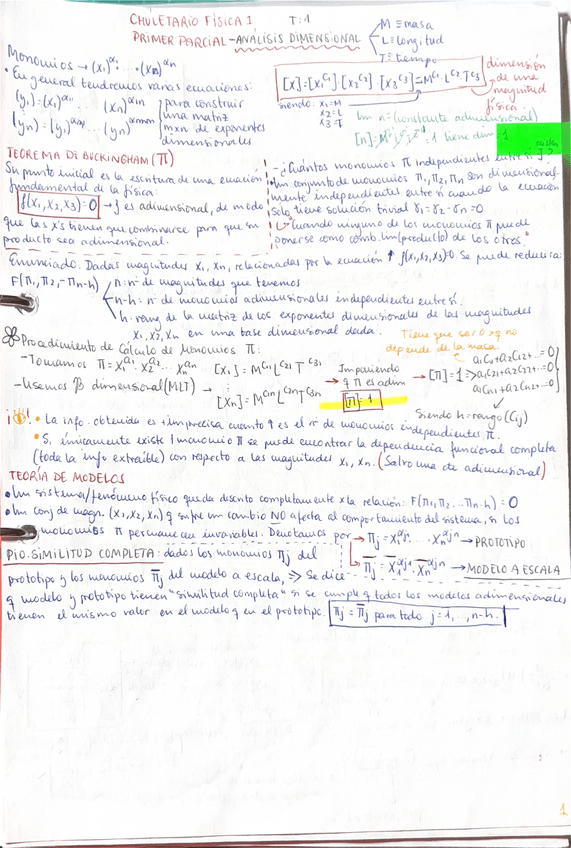 CHULETARIO FÍSICA 1 T:1
PRIMER PARCIAL - ANÁLISIS DIMENSIONAL
M ≡ masa
L ≡ longitud
T ≡ tiempo
Monomios → (x₁)^α₁ · ... · (xn)^αn
• En general tendremos varias ecuaciones:
para construir
una matriz
mxn de exponentes
dimensionales
[X] = [X₁^C₁] · [X₂^C₂] · [X₃^C₃] = M^C₁ · L^C₂ · T^C₃
dimensión
de una
magnitud
física.
siendo: x₁=M
x₂=L
x₃=T
n=(constante adimensional)
1
TEOREMA DE BUCKINGHAM (Π)
Su punto inicial es la escritura de una ecuación
fundamental de la física:
f(x₁, x₂, x₃)=0 → f es adimensional, de modo
que las x's tienen que combinarse para que su
producto sea adimensional.
- ¿Cuántos monomios π independientes entre sí?
• Un conjunto de monomios π₁, π₂, πn son dimensional-
mente independientes entre sí cuando la ecuación
solo tiene solución trivial γ₁=γ₂-γn=0
↳ "Cuando ninguno de los monomios π puede
ponerse como comb.lin(producto) de los otros."
Enunciado: Dadas magnitudes x₁, xn, relacionadas por la ecuación ↑ f(x₁,x₂,x₃)=0. Se puede reducir a:
F(π₁, π₂, -πn-h)
n: nº de magnitudes que tenemos
n-h: nº de monomios adimensionales independientes entre sí.
h: rang de la matriz de los exponentes dimensionales de las magnitudes
x₁, x₂, xn en una base dimensional dada.
Procedimiento de Cálculo de Monomios π:
Tiene que ser 0 xq no
depende de la masa.
- Tomamos π = x₁^a₁ · x₂^a₂ ... xn^an [X₁] = M^C₁₁ L^C₂₁ T^C₃₁
- Usamos β dimensional (MLT) → ⋮
[Xn] = M^C₁n L^C₂n T^C₃n
Imponiendo
q π es adim
[π]=1
→ [π]=1 ⇒
a₁C₁₁+a₂C₁₂+...=0
a₁C₂₁+a₂C₂₂+...=0
a₁Cn₁+a₂Cn₂...=0
Siendo h=rango(Cij)
• La info. obtenida es + imprecisa cuanto + es el nº de monomios independientes π.
• Si únicamente existe 1 monomio π se puede encontrar la dependencia funcional completa
(toda la info extraíble) con respecto a las magnitudes x₁, xn. (Salvo una cte adimensional)
TEORÍA DE MODELOS
• Un sistema/fenómeno físico queda descrito completamente x la relación: F(π₁, π₂...πn-h) = 0
• Un conj de magn. (x₁, x₂, xn) q sufre un cambio NO afecta al comportamiento del sistema, si los
monomios π permanecen invariables. Denotamos por
πj = x₁^αj₁ ... xn^αjn → PROTOTIPO
π̄j = x̄₁^αj₁ ... x̄n^αjn → MODELO A ESCALA
PIO. SIMILITUD COMPLETA: dados los monomios πj del
prototipo y los monomios π̄j del modelo a escala, ⇒ Se dice
q modelo y prototipo tienen "similitud completa" si se cumple q todos los modelos adimensionales
tienen el mismo valor en el modelo q en el prototipo. πj = π̄j para todo j=1,...,n-h.
1